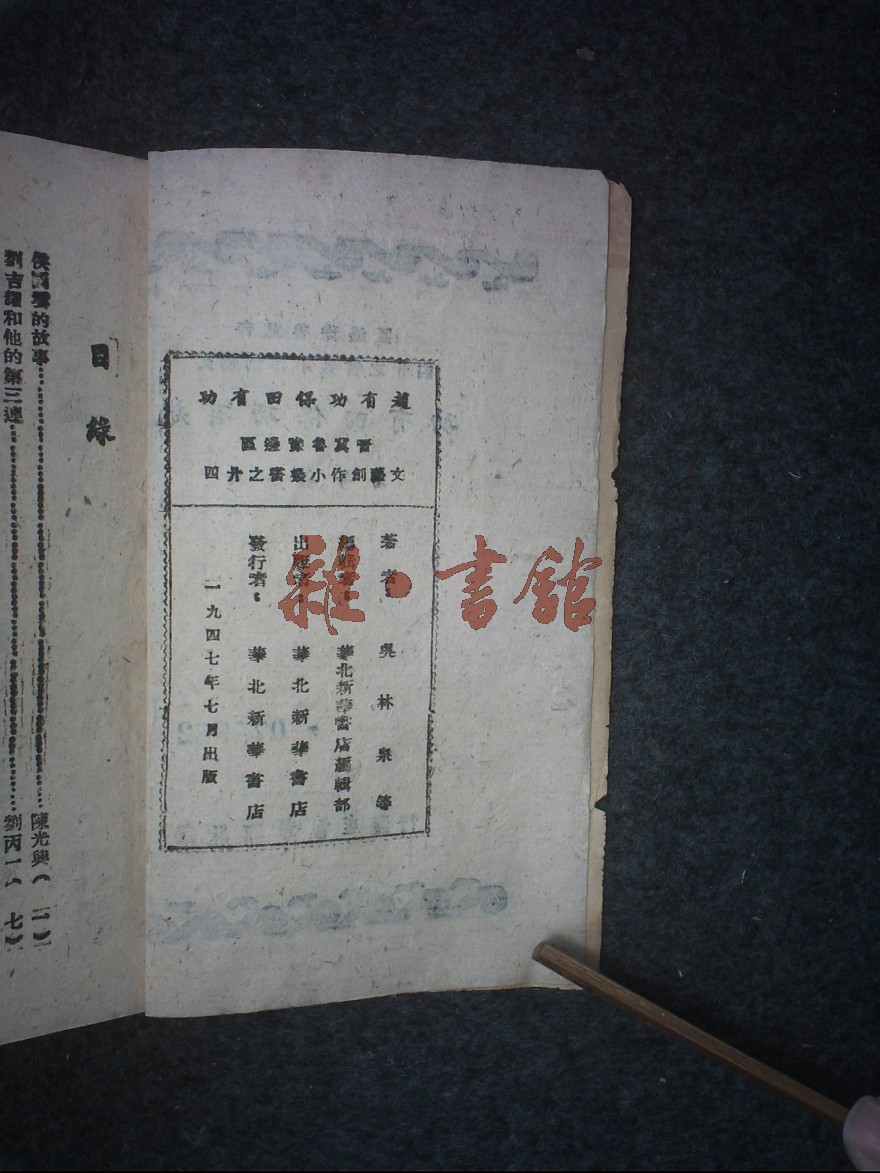 趙有功保田有功
晉冀魯豫邊區
文藝創作小叢書之廿四
著者：吳林泉等
編輯者：華北新華書店編輯部
出版者：華北新華書店
發行者：華北新華書店
一九四七年七月出版
雜·書館
目錄
的故事……陳光興（一）
劉吉 和他的第三連……劉丙一（七）